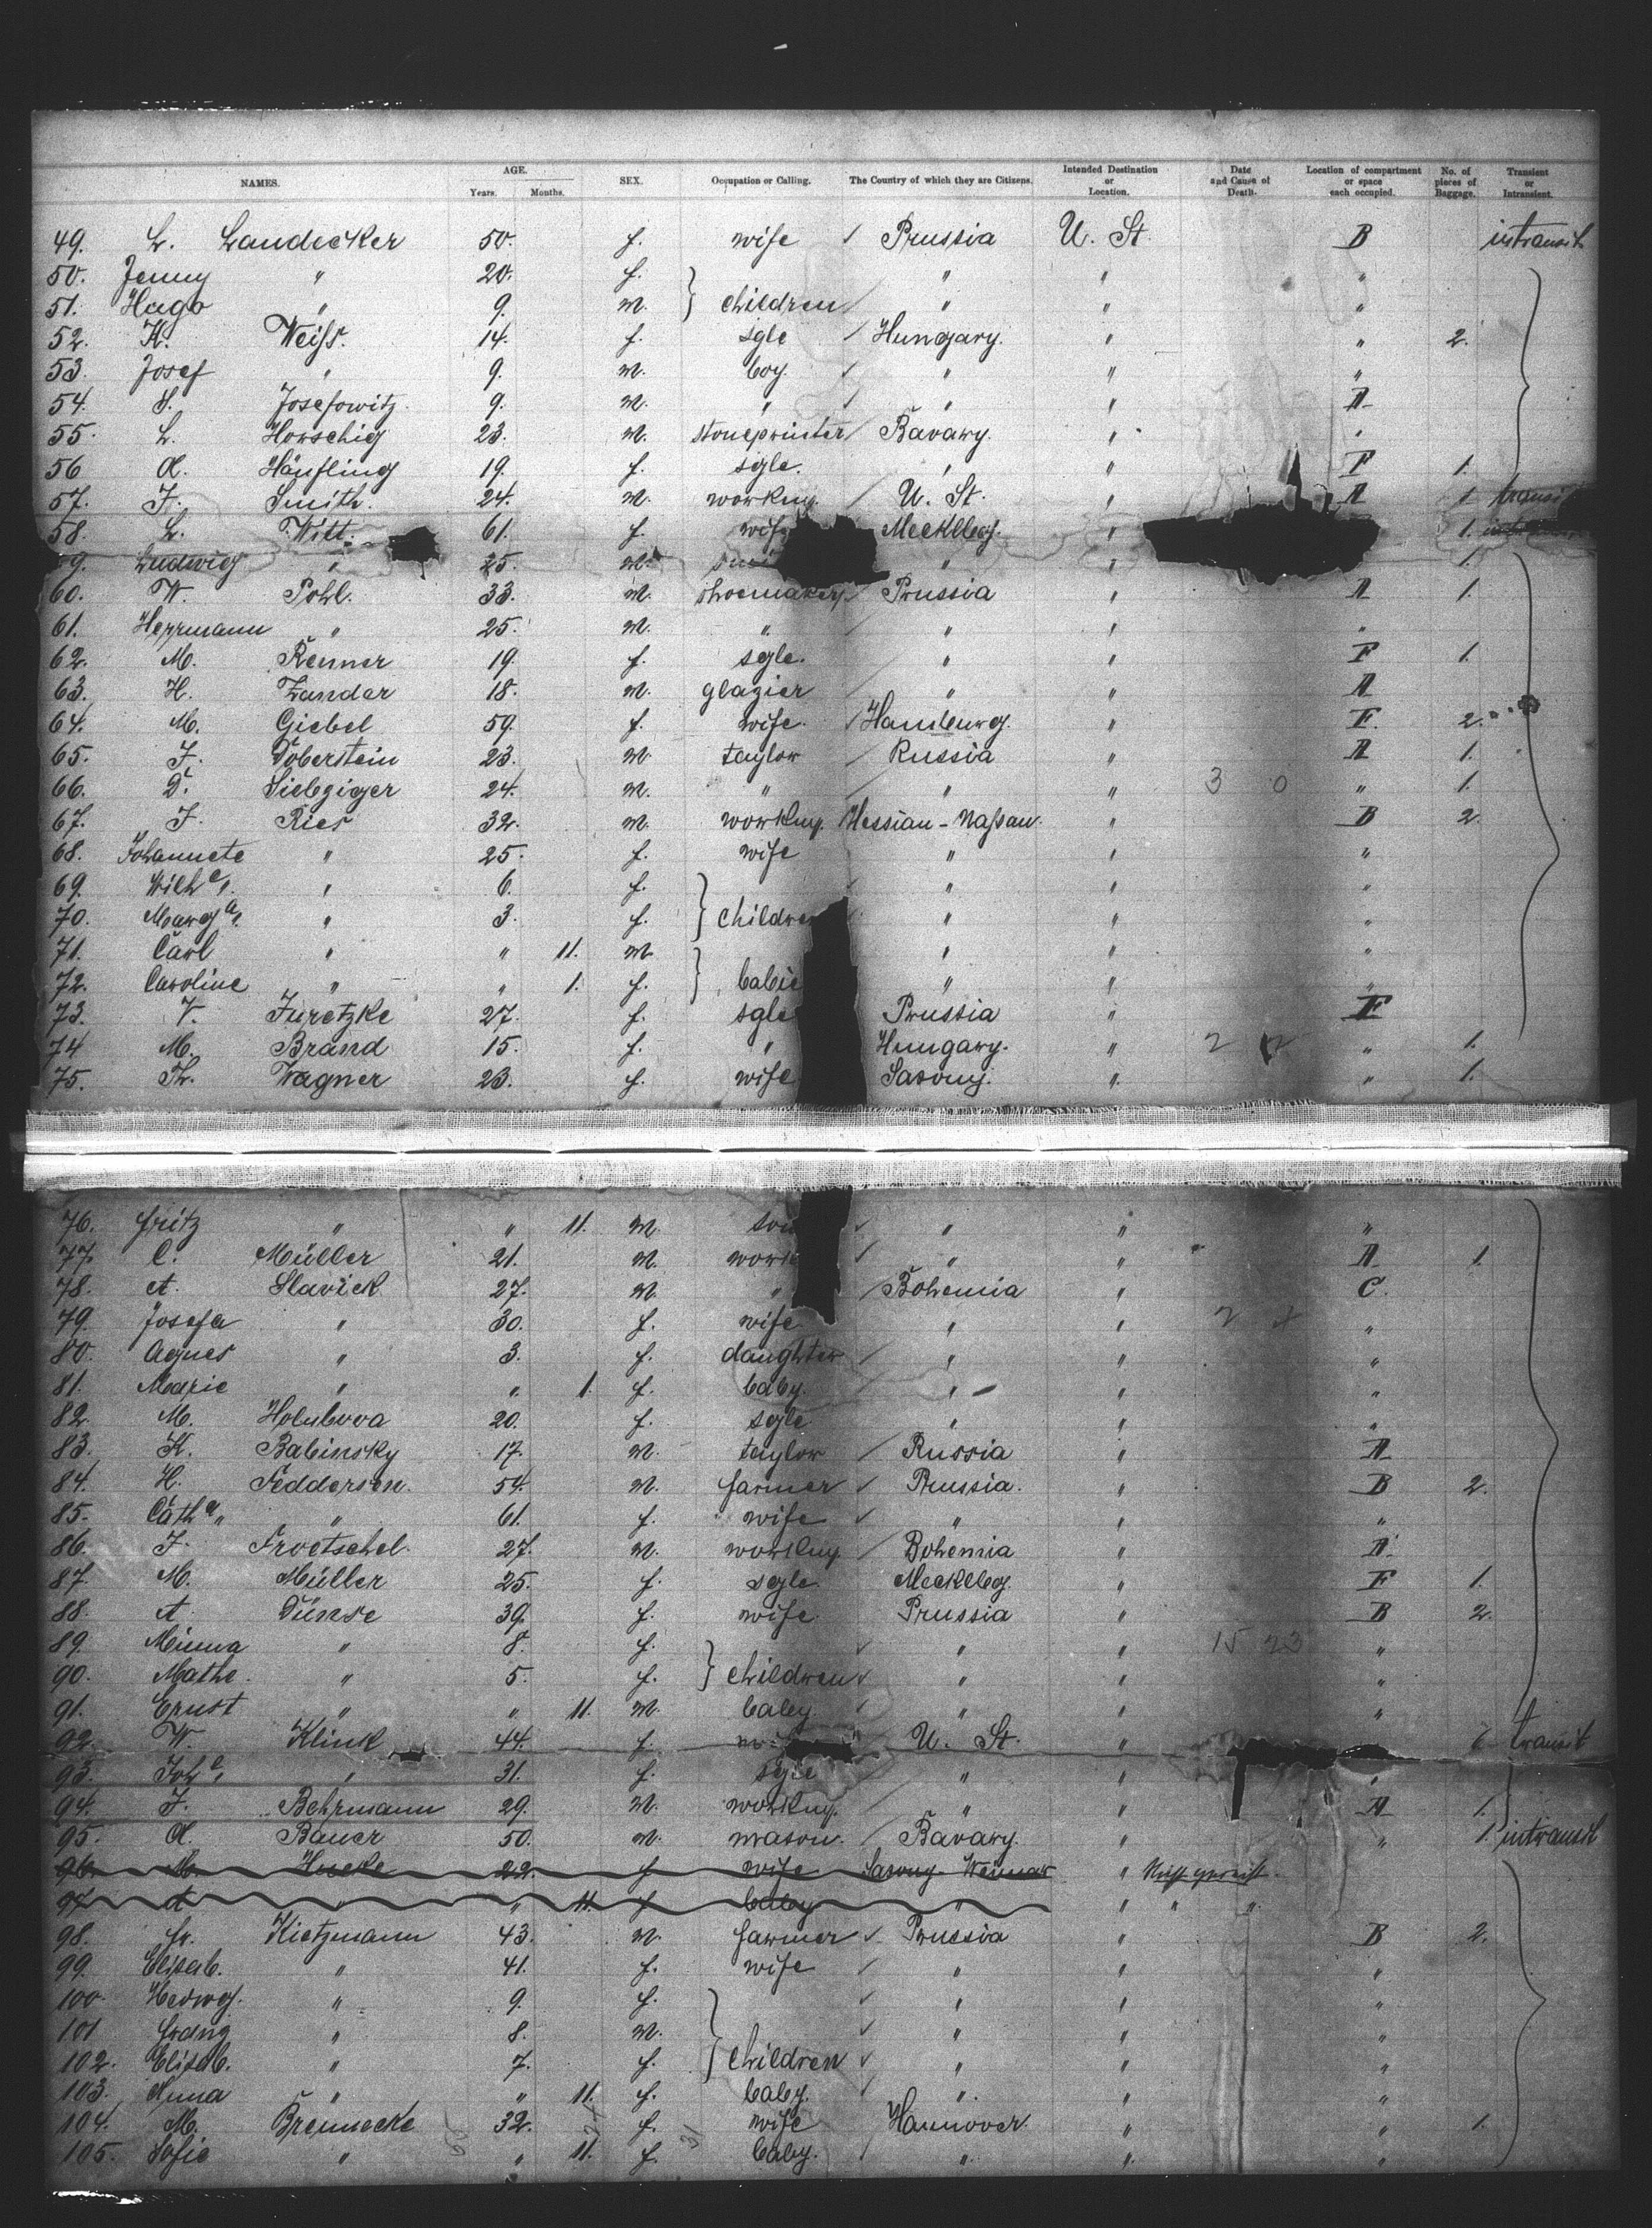 NAMES. AGE. Years. Months. SEX. Occupation or Calling. The Country of which they are Citizens. Intended Destination or Location. Date and Cause of Death. Location of compartment or space each occupied. No. of pieces of Baggage. Transient or Intransient.
49. L. Landecker 50. f. wife / Prussia U. St. B intransit
50. Jenny " 20. f. " " "
51. Hugo " 9. m. } children / " " "
52. K. Weiss. 14. f. sgle / Hungary. " " 2.
53. Josef " 9. m. boy. / " " "
54. S. Josefowitz. 9. m. " / " " A
55. L. Horschig 23. m. stoneprinter / Bavary. " "
56 A. Häufling 19. f. sgle. " " F 1.
57. F. Smith. 24. m. workmg. / U. St. " A 1 transit
58. L. Witt. 61. f. wife Mecklbg. " 1.
59. Ludwig " 25. m. " " 1.
60. W. Pohl. 33. m. shoemaker / Prussia " A 1.
61. Herrmann " 25. m. " / " " "
62. M. Renner 19. f. sgle. / " " F 1.
63. H. Zander 18. m. glazier / " " A
64. M. Giebel 59. f. wife. / Hamburg. " F. 2.
65. F. Doberstein 23. m. taylor / Russia " A 1.
66. D. Sielgziger 24. m. " / " " 3 0 " 1.
67. F. Ries 32. m. workmg. / Hessian-Nassau. " B 2.
68. Johannete " 25. f. wife " " "
69. Wilhe. " 6. f. " " "
70. Marga. " 3. f. } children " " "
71. Carl " " 11. m. " " "
72. Caroline " " 1. f. } babie " " "
73. V. Juretzke 27. f. sgle Prussia " F
74 M. Brand 15. f. " Hungary. " 2 " 1.
75. Th. Wagner 23. f. wife. Saxony. " " 1.
76. Fritz " " 11. m. son / " " "
77. C. Müller 21. m. work / " " A 1.
78. A. Slavick 27. m. " / Bohemia " C.
79. Josefa " 30. f. wife " " 2 4 "
80. Agnes " 3. f. daughter / " " "
81. Marie " " 1. f. baby. / " " "
82. M. Holubova 20. f. sgle " " "
83. K. Babinsky 17. m. taylor / Russia " A
84. H. Feddersen. 54. m. farmer / Prussia. " B 2.
85. Cathe " 61. f. wife / " " "
86. F. Froetschel. 27. m. workmg. / Bohemia " A
87. M. Müller 25. f. sgle. Mecklbg. " F 1.
88. A. Dünse 39. f. wife. Prussia " B 2.
89. Minna " 8. f. / " " 15 23 "
90. Mathe. " 5. f. } children / " " "
91. Ernst " " 11. m. baby / " " "
92. W. Klink 44. f. U. St. " transit
93. Johe. " 31. f. sgle " " "
94. F. Behrmann 29. m. workmg. / " " A 1.
95. A. Bauer 50. m. mason. / Bavary. " " 1. intransit
96. M. Hucke 22. f. wife Saxony-Weimar "
97. A " " 11. f. baby " " " "
98. Fr. Kietzmann 43. m. farmer / Prussia " B 2.
99. Elisab. " 41. f. wife / " " "
100. Hedwg. " 9. f. / " " "
101 Frdng " 8. m. / " " "
102. Elisab. " 7. f. } children / " " "
103. Anna " " 11. f. baby. / " " "
104. M. Brennecke 32. f. wife Hannover. " " 1.
105. Sofie " " 11. f. baby. / " " "